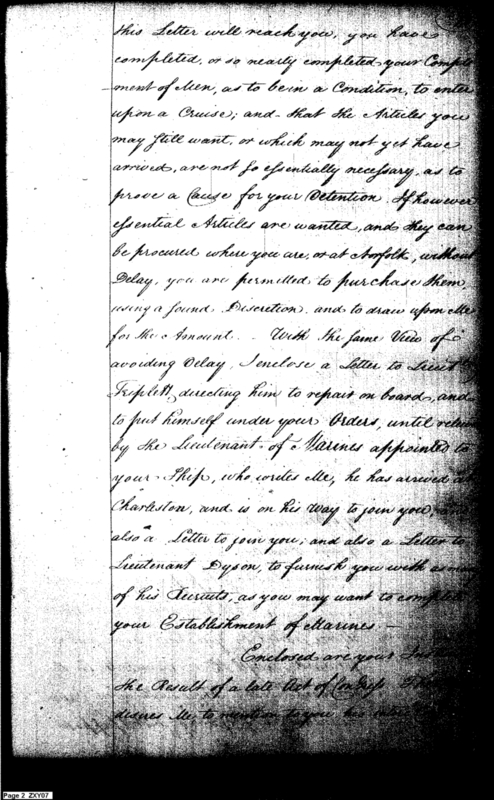 this Letter will reach you, you have
completed, or so nearly completed your Comple
ment of Men, as to be in a Condition, to enter
upon a Cruise; and that the Articles you
may still want, or which may not yet have
arrived, are not so essentially necessary, as to
prove a Cause for your Detention. If however
essential Articles are wanted, and they can
be procured where you are, or at Norfolk, without
Delay, you are permitted to purchase them
using a sound Discretion and to draw upon Me
for the Amount. With the same View of
avoiding Delay, I enclose a Letter to Lieut
Triplett, directing him to repair on board, and
to put himself under your Orders, until
by the Lieutenant of Marines appointed to
your Ship, who writes Me, he has arrived at
Charleston, and is on his Way to join you,
also a Letter to join you; and also a Letter to
Lieutenant Dyson, to furnish you with as many
of his Recruits, as you may want to complete
your Establishment of Marines. —
Enclosed are your
the Result of a late Act of Congress
desires Me, to mention to you his
Page 2 ZXY07